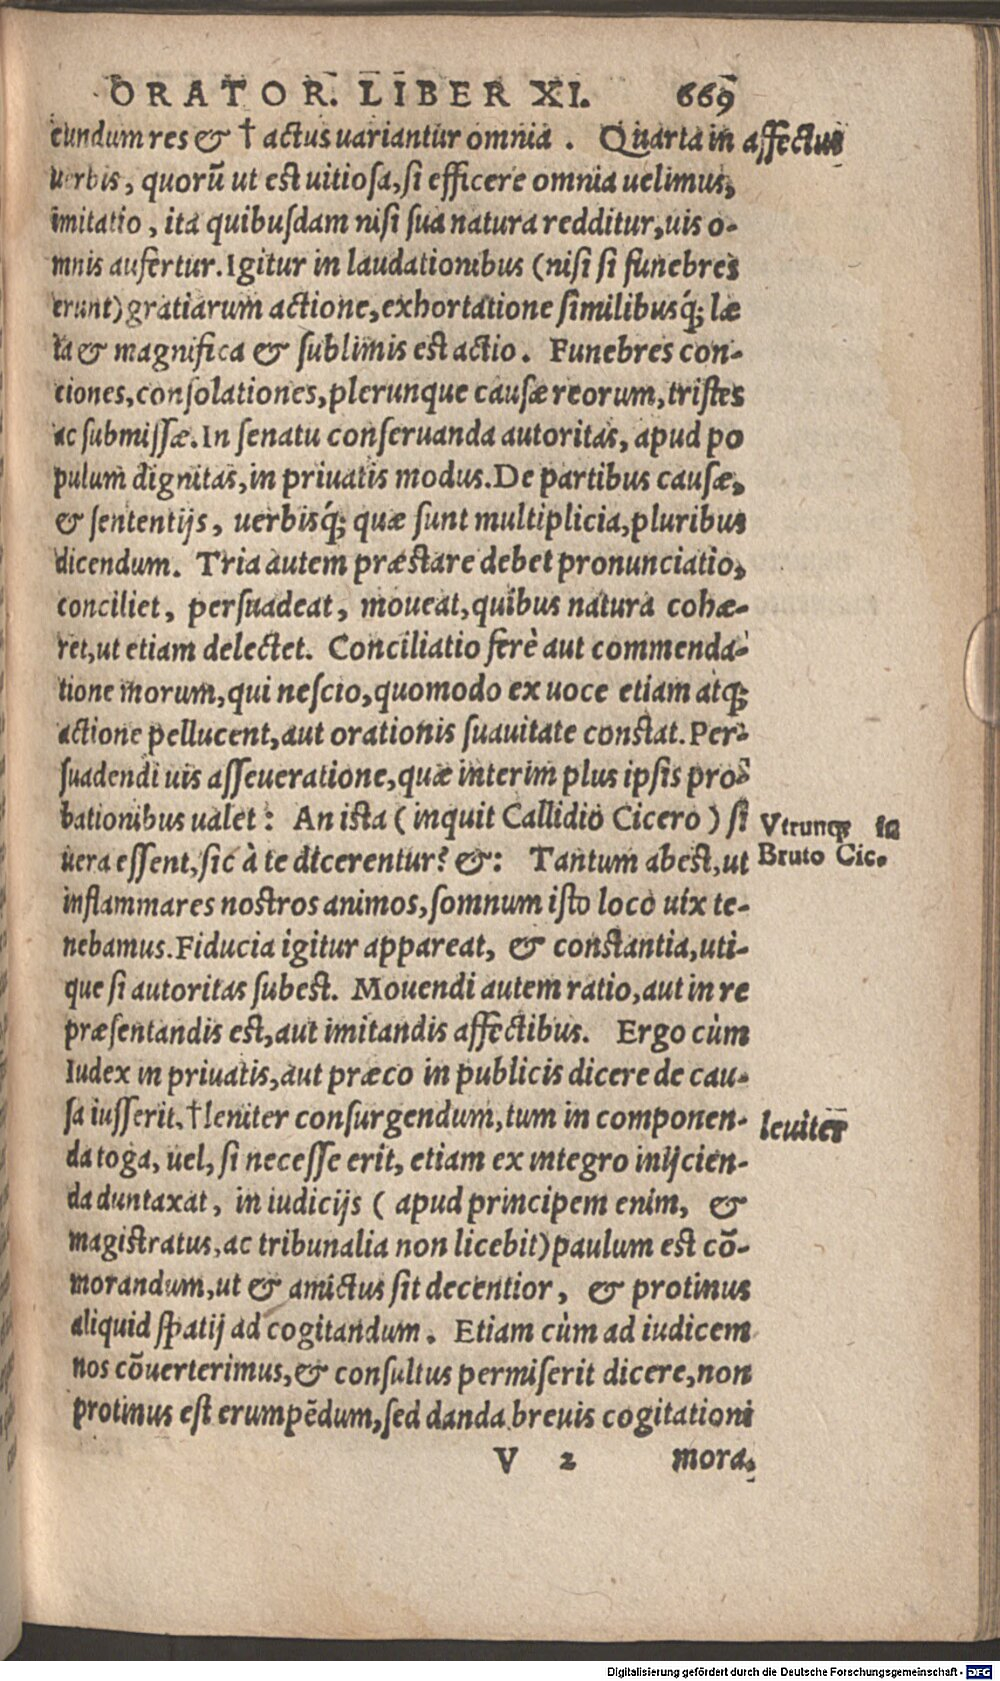 ORATOR. LIBER XI. 669
eundum res & † actus uariantur omnia. Quarta in affectus
uerbis, quorū ut est uitiosa, si efficere omnia uelimus,
imitatio, ita quibusdam nisi sua natura redditur, uis o-
mnis aufertur. Igitur in laudationibus (nisi si funebres
erunt) gratiarum actione, exhortatione similibusq́; læ
ta & magnifica & sublimis est actio. Funebres con-
ciones, consolationes, plerunque causæ reorum, tristes
ac submissæ. In senatu conseruanda autoritas, apud po
pulum dignitas, in priuatis modus. De partibus causæ,
& sententijs, uerbisq́; quæ sunt multiplicia, pluribus
dicendum. Tria autem præstare debet pronunciatio,
conciliet, persuadeat, moueat, quibus natura cohæ-
ret, ut etiam delectet. Conciliatio ferè aut commenda-
tione morum, qui nescio, quomodo ex uoce etiam atq;
actione pellucent, aut orationis suauitate constat. Per-
suadendi uis asseueratione, quæ interim plus ipsis pro-
bationibus ualet: An ista (inquit Callidio Cicero) si
uera essent, sic à te dicerentur? &: Tantum abest, ut
Vtrunq; in
Bruto Cic.
inflammares nostros animos, somnum isto loco uix te-
nebamus. Fiducia igitur appareat, & constantia, uti-
que si autoritas subest. Mouendi autem ratio, aut in re
præsentandis est, aut imitandis affectibus. Ergo cùm
Iudex in priuatis, aut præco in publicis dicere de cau-
sa iusserit, † leniter consurgendum, tum in componen-
leuiter
da toga, uel, si necesse erit, etiam ex integro inijcien-
da duntaxat, in iudicijs (apud principem enim, &
magistratus, ac tribunalia non licebit) paulum est cō-
morandum, ut & amictus sit decentior, & protinus
aliquid spatij ad cogitandum. Etiam cùm ad iudicem
nos cōuerterimus, & consultus permiserit dicere, non
protinus est erumpēdum, sed danda breuis cogitationi
V 2 mora,
Digitalisierung gefördert durch die Deutsche Forschungsgemeinschaft - DFG